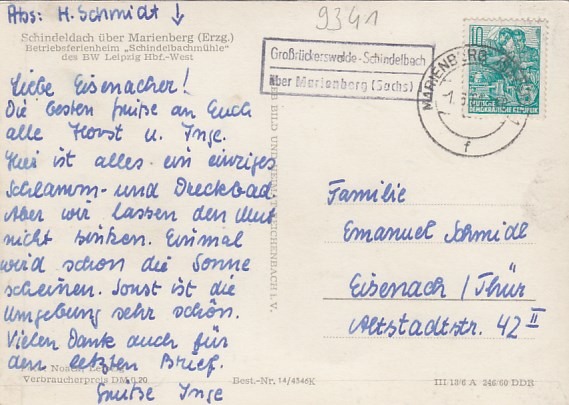 Abs: H. Schmidt ↓
9341
Schindeldach über Marienberg (Erzg.)
Betriebsferienheim „Schindelbachmühle"
des BW Leipzig Hbf.-West
Großrückerswalde-Schindelbach
über Marienberg (Sachs)
MARIENBERG
10
DEUTSCHE
DEMOKRATISCHE REPUBLIK
f
Liebe Eisenacher!
Die besten Grüße an Euch
alle Horst u. Inge.
Hier ist alles ein einziges
Schlamm- und Dreckbad
Aber wir lassen den Mut
nicht sinken. Einmal
wird schon die Sonne
scheinen. Sonst ist die
Umgebung sehr schön.
Vielen Dank auch für
den letzten Brief.
Grüße Inge
Familie
Emanuel Schmidt
Eisenach / Thür
Altstadtstr. 42 II
Verbraucherpreis DM 0,20
Best.-Nr. 14/4346K
III 18/6 A 246/60 DDR